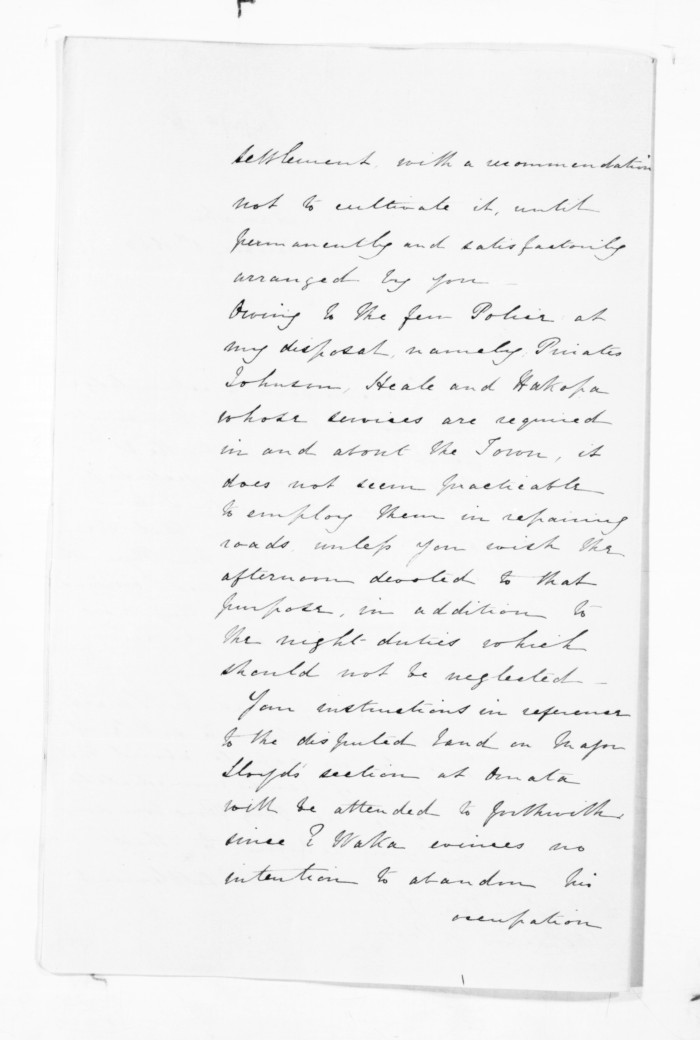 settlement, with a recommendation
not to cultivate it, until
permanently and satisfactorily
arranged by you —
Owing to the few Police at
my disposal, namely, Privates
Johnson, Heale and Hakopa
whose services are required
in and about the Town, it
does not seem practicable
to employ them in repairing
roads, unless you wish the
afternoon devoted to that
purpose, in addition to
the night-duties which
should not be neglected —
Your instructions in reference
to the disputed land on Major
Lloyd's section at Omata
will be attended to forthwith,
since E Waka evinces no
intention to abandon his
occupation